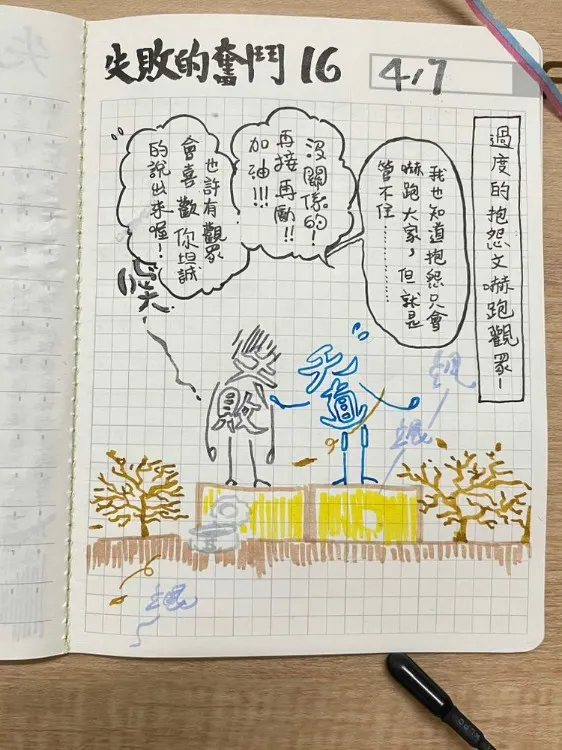 失敗的奮鬥 16
4/7
過度的抱怨文嚇跑觀眾!
我也知道抱怨只會
嚇跑大家，但就是
管不住…………
沒關係的!
再接再勵!!
加油!!!
也許有觀眾
會喜歡你坦誠
的說出來喔!
失敗
天真